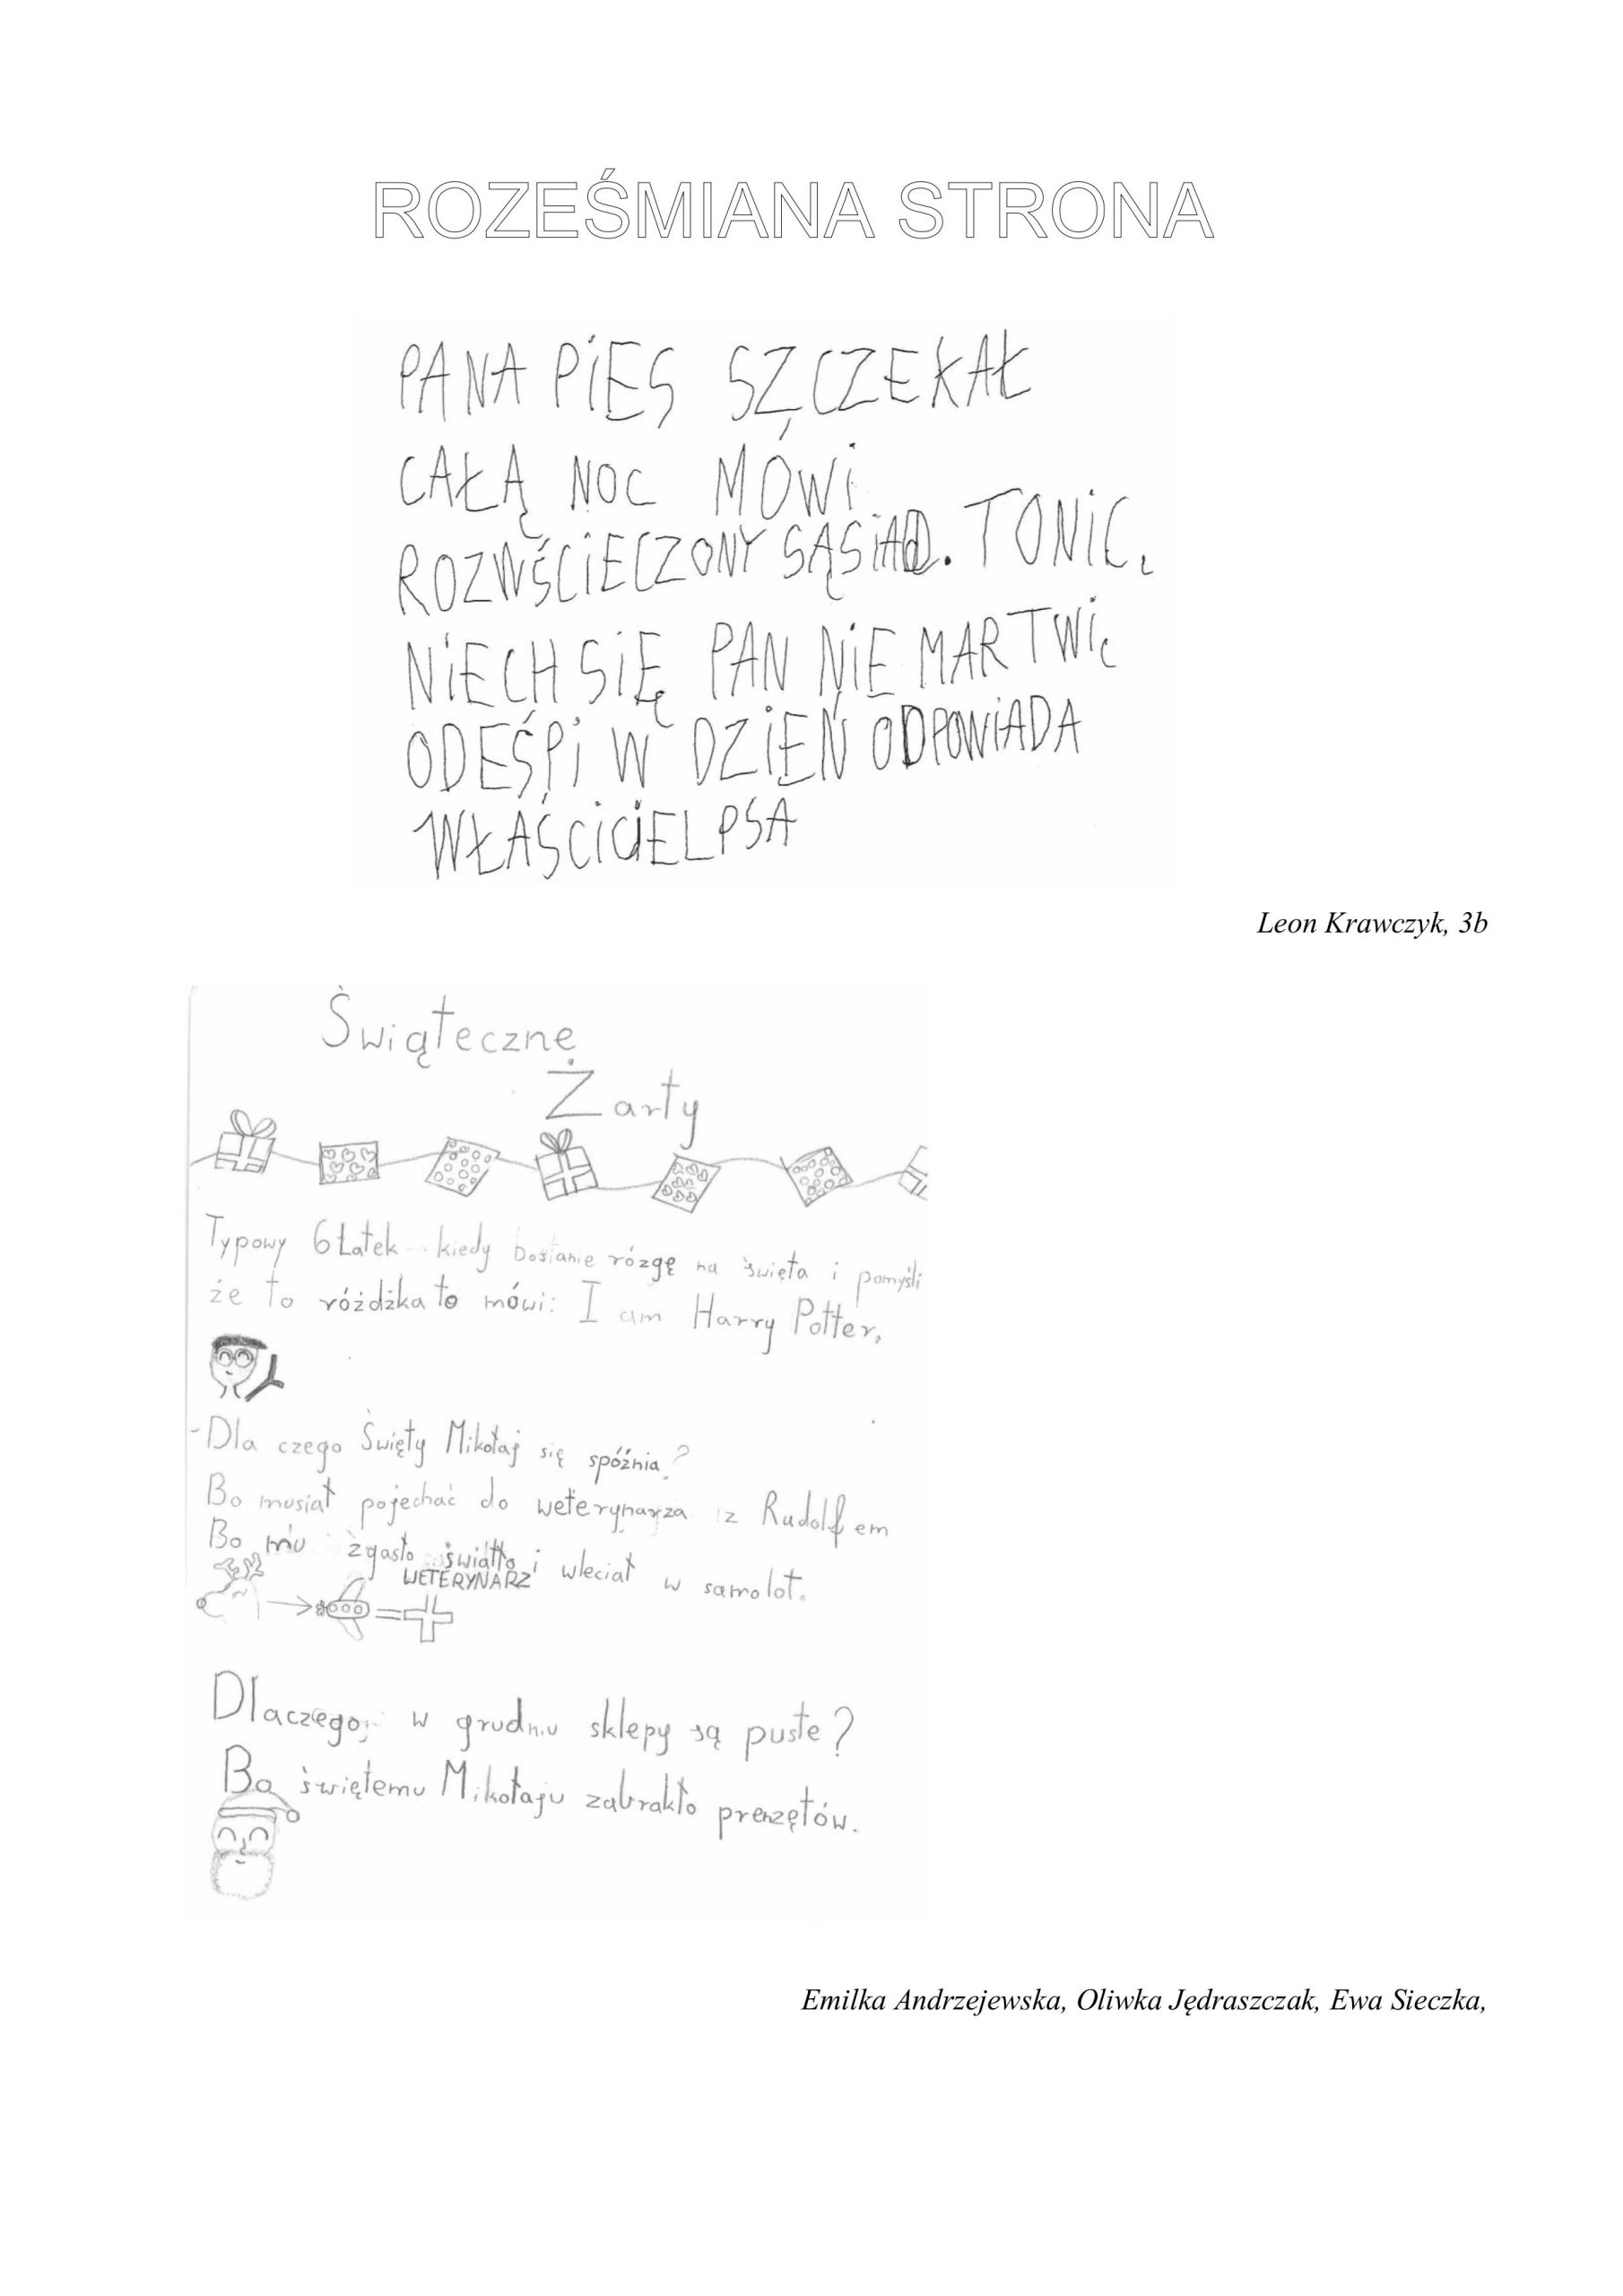 ROZEŚMIANA STRONA
PANA PIES SZCZEKAŁ
CAŁĄ NOC MÓWI
ROZWŚCIECZONY SĄSIAD. TO NIC,
NIECH SIĘ PAN NIE MARTWI,
ODEŚPI W DZIEŃ ODPOWIADA
WŁAŚCICIEL PSA
Leon Krawczyk, 3b
Świąteczne
Żarty
Typowy 6 Łatek kiedy dostanie rózgę na święta i pomyśli
że to różdżka to mówi: I am Harry Potter,
-Dla czego Święty Mikołaj się spóźnia?
Bo musiał pojechać do weterynarza z Rudolfem
Bo mu zgasło światło i wleciał w samolot.
WETERYNARZ
Dlaczego w grudniu sklepy są puste?
Bo świętemu Mikołaju zabrakło prenzętów.
Emilka Andrzejewska, Oliwka Jędraszczak, Ewa Sieczka,